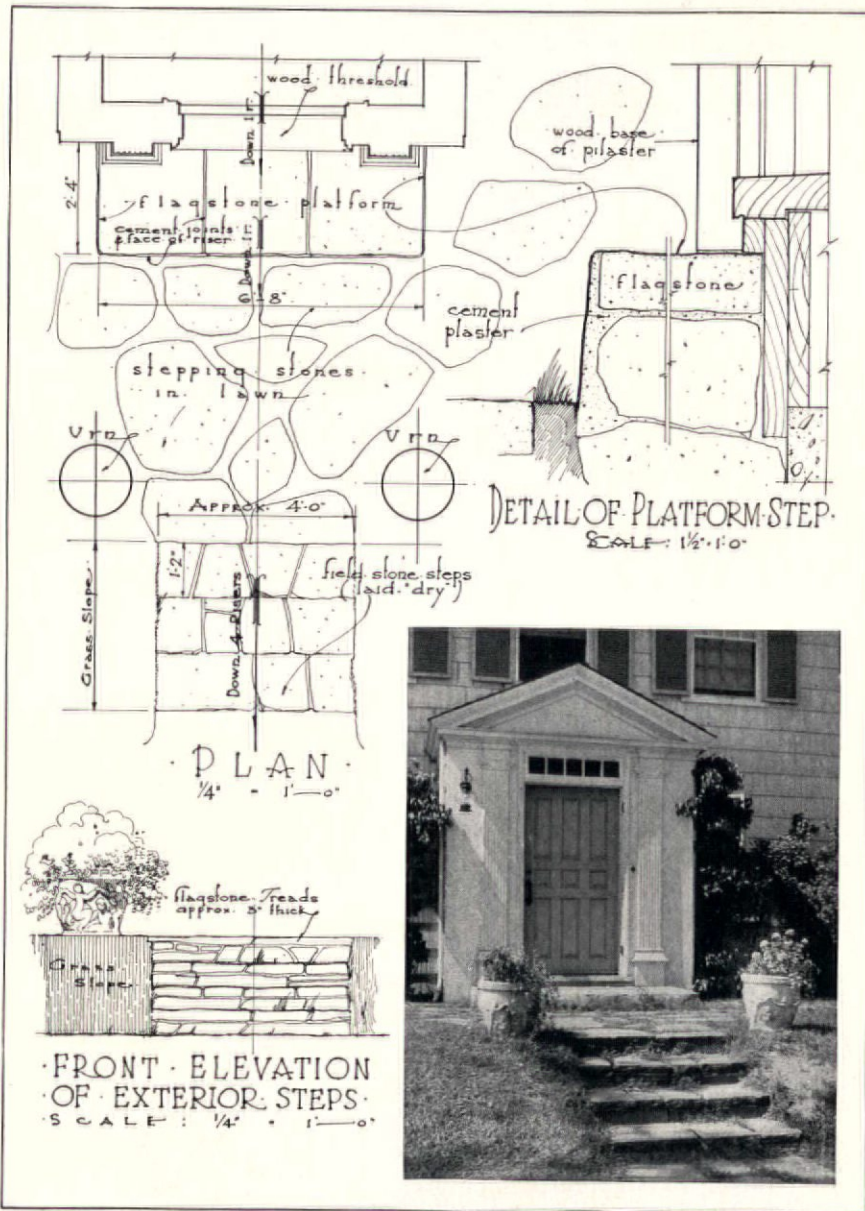 wood threshold
Down 1r.
2'-4"
flagstone platform
cement joints
& face of riser
Down 1r.
6'-8"
stepping stones
in lawn
Urn
Urn
Approx. 4'-0"
1'-2"
Grass Slope
Down 4 Risers
field stone steps
(laid "dry")
PLAN
1/4" = 1'-0"
wood base
of pilaster
flagstone
cement
plaster
DETAIL OF PLATFORM STEP
SCALE: 1½"=1'-0"
flagstone Treads
approx. 3" thick
Grass
Slope
FRONT ELEVATION
OF EXTERIOR STEPS
SCALE: 1/4" = 1'-0"